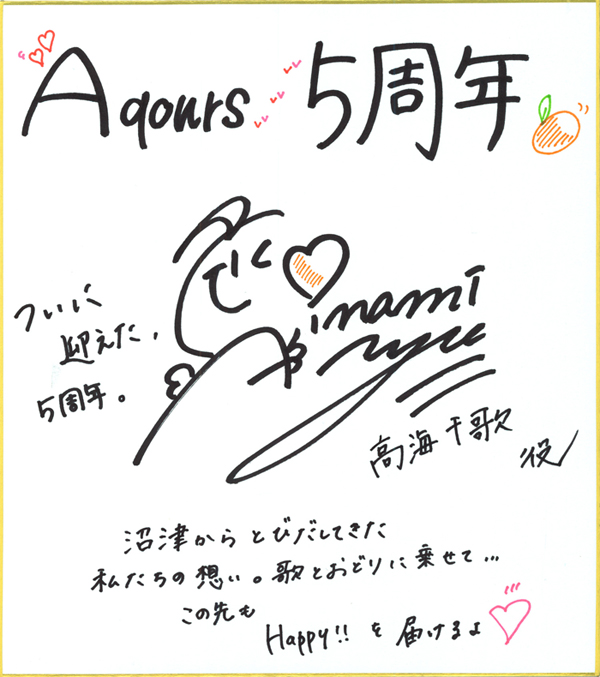 Aqours 5周年
ついに
迎えた、
5周年。
inami
高海千歌
役
沼津からとびだしてきた
私たちの想い。歌とおどりに乗せて…
この先も
Happy!!を届けるよ